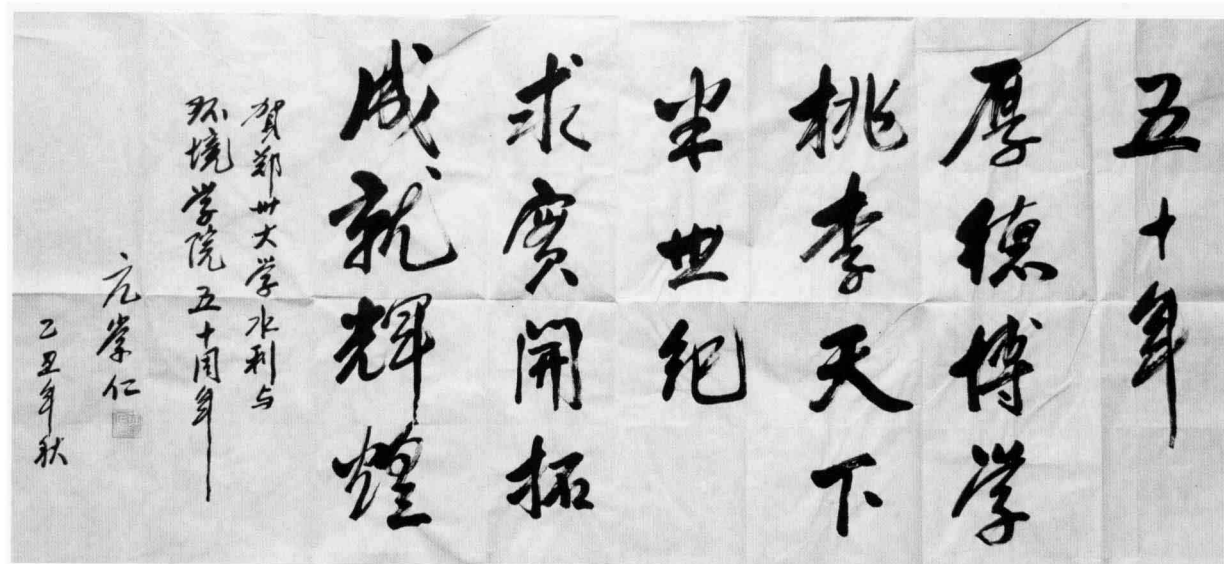 五十年
厚德博学
桃李天下
半世纪
求實開拓
成就輝煌
賀郑州大学水利与
环境学院五十周年
亢崇仁
乙丑年秋